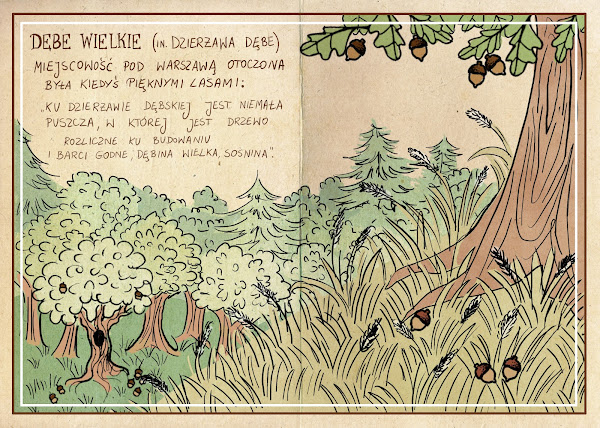 DĘBE WIELKIE (IN. DZIERZAWA DĘBE)
MIEJSCOWOŚĆ POD WARSZAWĄ OTOCZONA
BYŁA KIEDYŚ PIĘKNYMI LASAMI:
„KU DZIERZAWIE DĘBSKIEJ JEST NIEMAŁA
PUSZCZA, W KTÓREJ JEST DRZEWO
ROZLICZNE KU BUDOWANIU
I BARCI GODNE, DĘBINA WIELKA, SOSNINA".